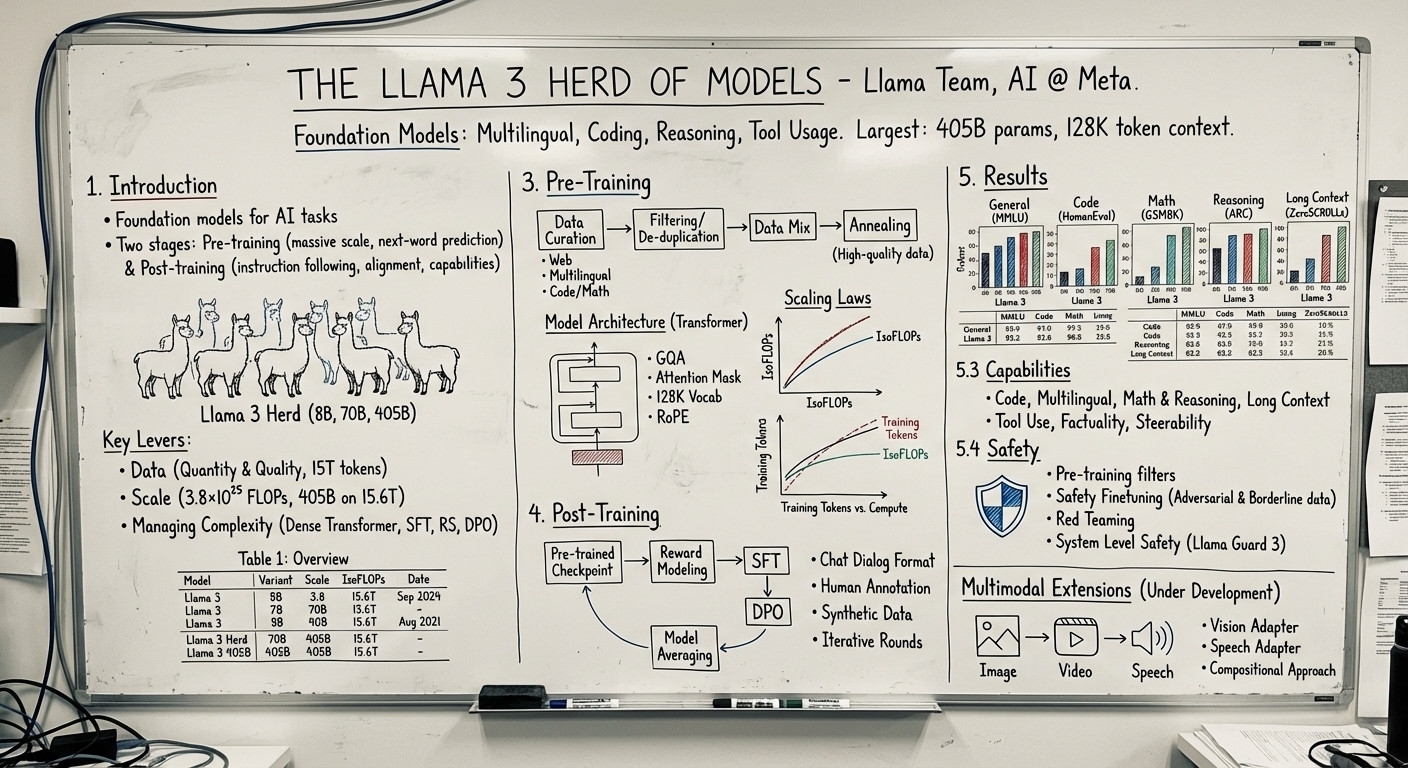 THE LLAMA 3 HERD OF MODELS - Llama Team, AI @ Meta.
Foundation Models: Multilingual, Coding, Reasoning, Tool Usage. Largest: 405B params, 128K token context.
1. Introduction
• Foundation models for AI tasks
• Two stages: Pre-training (massive scale, next-word prediction)
& Post-training (instruction following, alignment, capabilities)
Llama 3 Herd (8B, 70B, 405B)
Key Levers:
• Data (Quantity & Quality, 15T tokens)
• Scale (3.8×10²⁵ FLOPs, 405B on 15.6T)
• Managing Complexity (Dense Transformer, SFT, RS, DPO)
Table 1: Overview
Model Variant Scale IsoFLOPs Date
Llama 3 3.8 15.6T Sep 2024
Llama 3 78 70B 13.6T -
Llama 3 15.6T Aug 2021
Llama 3 Herd 70B 405B 15.6T -
Llama 3 405B 15.6T -
3. Pre-Training
Data Curation
Filtering/ De-duplication
Data Mix
Annealing
(High-quality data)
• Web
• Multilingual
• Code/Math
Model Architecture (Transformer)
• GQA
• Attention Mask
• 128K Vocab
• RoPE
Scaling Laws
IsoFLOPs
IsoFLOPs
IsoFLOPs
Training
Training
Tokens
IsoFLOPs
Training Tokens vs. Cempute
4. Post-Training
Pre-trained
Checkpoint
Reward
Modeling
SFT
DPO
Model
Averaging
• Chat Dialog Format
• Human Annotation
• Synthetic Data
• Iterative Rounds
5. Results
General
(MMLU)
Code
(HumanEval)
Math
(GSM8K)
Reasoning
(ARC)
Long Context
Llama 3
Llama 3
Llama 3
Llama 3
Llama 3
MMLU Code Math
General
Llama 3 93.2 92.6
MMLU Cods Math
Long Context 62.2 63.2 62.3
5.3 Capabilities
• Code, Multilingual, Math & Reasoning, Long Context
• Tool Use, Factuality, Steerability
5.4 Safety
• Pre-training filters
• Safety Finetuning (Adversarial & Borderline data)
• Red Teaming
• System Level Safety (Llama Guard 3)
Multimodal Extensions (Under Development)
Image
Video
Speech
• Vision Adapter
• Speech Adapter
• Compositional Approach